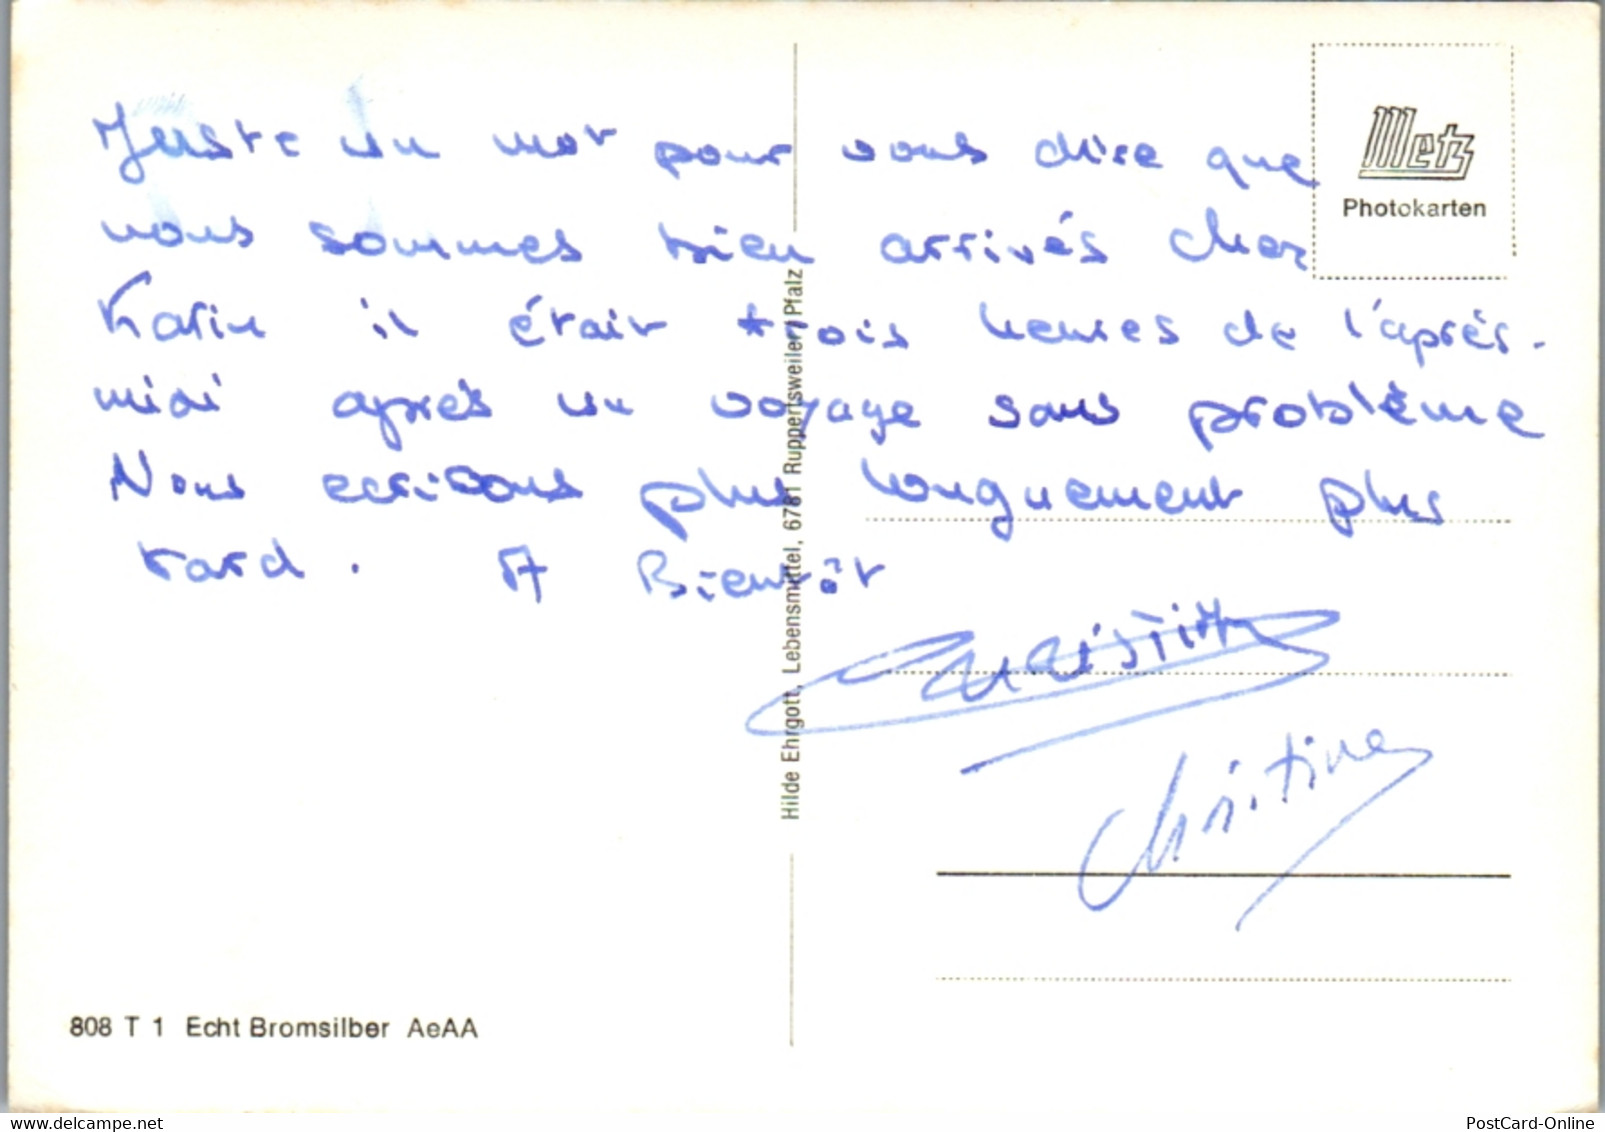 Juste un mot pour vous dire que
nous sommes bien arrivés chez
Karin il était trois heures de l'après-
midi après un voyage sans problème
Nous ecrivons plus longuement plus
tard. A Bientôt
Christine
Metz
Photokarten
Hilde Ehrgott, Lebensmittel, 6781 Ruppertsweiler/Pfalz
808 T 1 Echt Bromsilber AeAA
delcampe.net
PostCard-Online